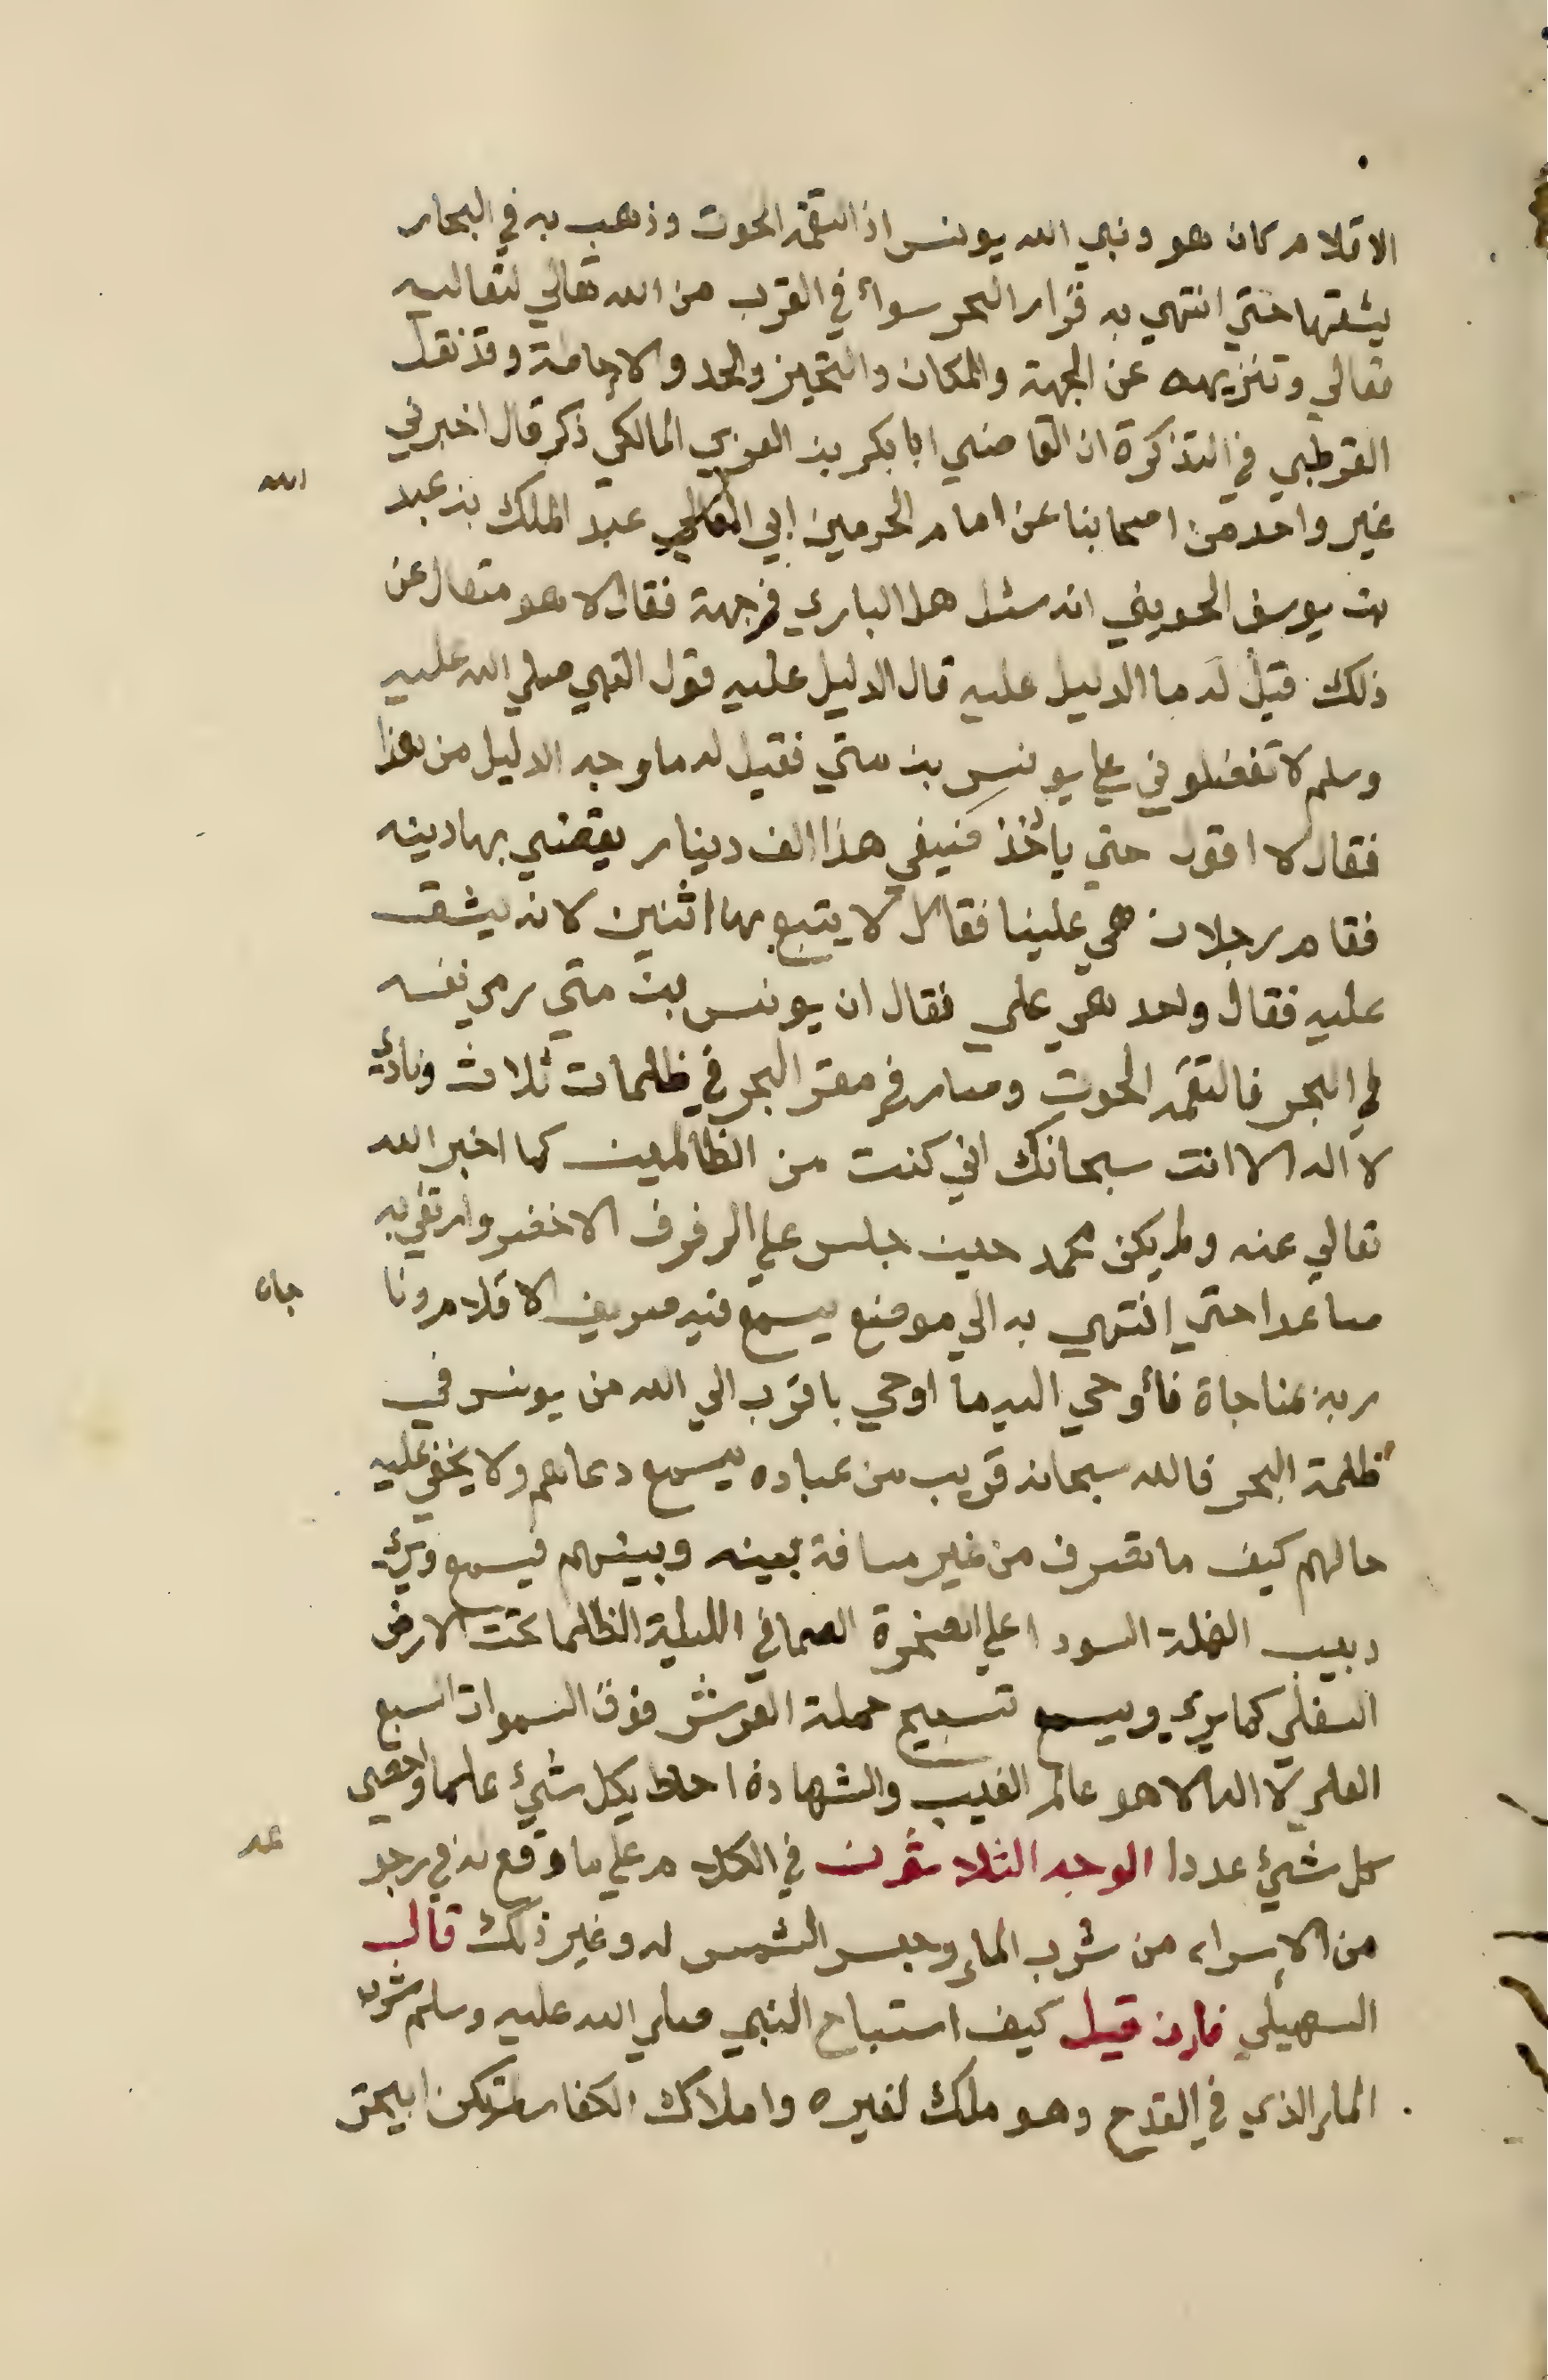 الاقلام كان هو ونبي الله يونس اذ التقمه الحوت وذهب به في البحار
يشقها حتي انتهي به قرار البحر سواء في القرب من الله تعالي لتعاليه
تعالي وتنزيهه عن الجهة والمكان والتحيز والحد والاحاطة وقد نقل
القرطبي في التذكرة ان القاضي ابا بكر بن العربي المالكي ذكر قال اخبرني
غير واحد من اصحابنا عن امام الحرمين ابي المعالي عبد الملك بن عبد
الله
بن يوسف الجويني انه سئل هل الباري في جهة فقال لا هو متعال عن
ذلك قيل له ما الدليل عليه قال الدليل عليه قول النبي صلي الله عليه
وسلم لا تفضلوني علي يونس بن متي فقيل له ما وجه الدليل من هذا
فقال لا اقول حتي ياخذ ضيفي هذا الف دينار يقضي بها دينه
فقام رجلان هي علينا فقال لا يتبع بها اثنين لانه يشق
عليه فقال واحد هي علي فقال ان يونس بن متي رمي نفسه
في البحر فالتقمه الحوت وصار في مقر البحر في ظلمات ثلاث ونادي
لا اله الا انت سبحانك اني كنت من الظالمين كما اخبر الله
تعالي عنه ولم يكن محمد حين جلس علي الرفرف الاخضر وارتقي به
صاعدا حتي انتهي به الي موضع يسمع فيه صريف الاقلام ونا
جاه
ربه بمناجاة فأوحي اليه ما اوحي باقرب الي الله من يونس في
ظلمة البحر فالله سبحانه قريب من عباده يسمع دعاهم ولا يخفي عليه
حالهم كيف ما تصرف من غير مسافة بينه وبينهم فيسمع ويري
دبيب النملة السودا علي الصخرة الصما في الليلة الظلما تحت الارض
السفلي كما يري ويسمع تسبيح حملة العرش فوق السموات السبع
العلي لا اله الا هو عالم الغيب والشهادة احاط بكل شيء علما واحصي
كل شيء عددا الوجه الثلاثون في الكلام علي ما وقع له في رجو
عه
من الاسراء من شرب الماء وحبس الشمس له وغير ذلك قال
السهيلي فان قيل كيف استباح النبي صلي الله عليه وسلم شرب
الماء الذي في القدح وهو ملك لغيره واملاك الكفار لم تكن ابيحت